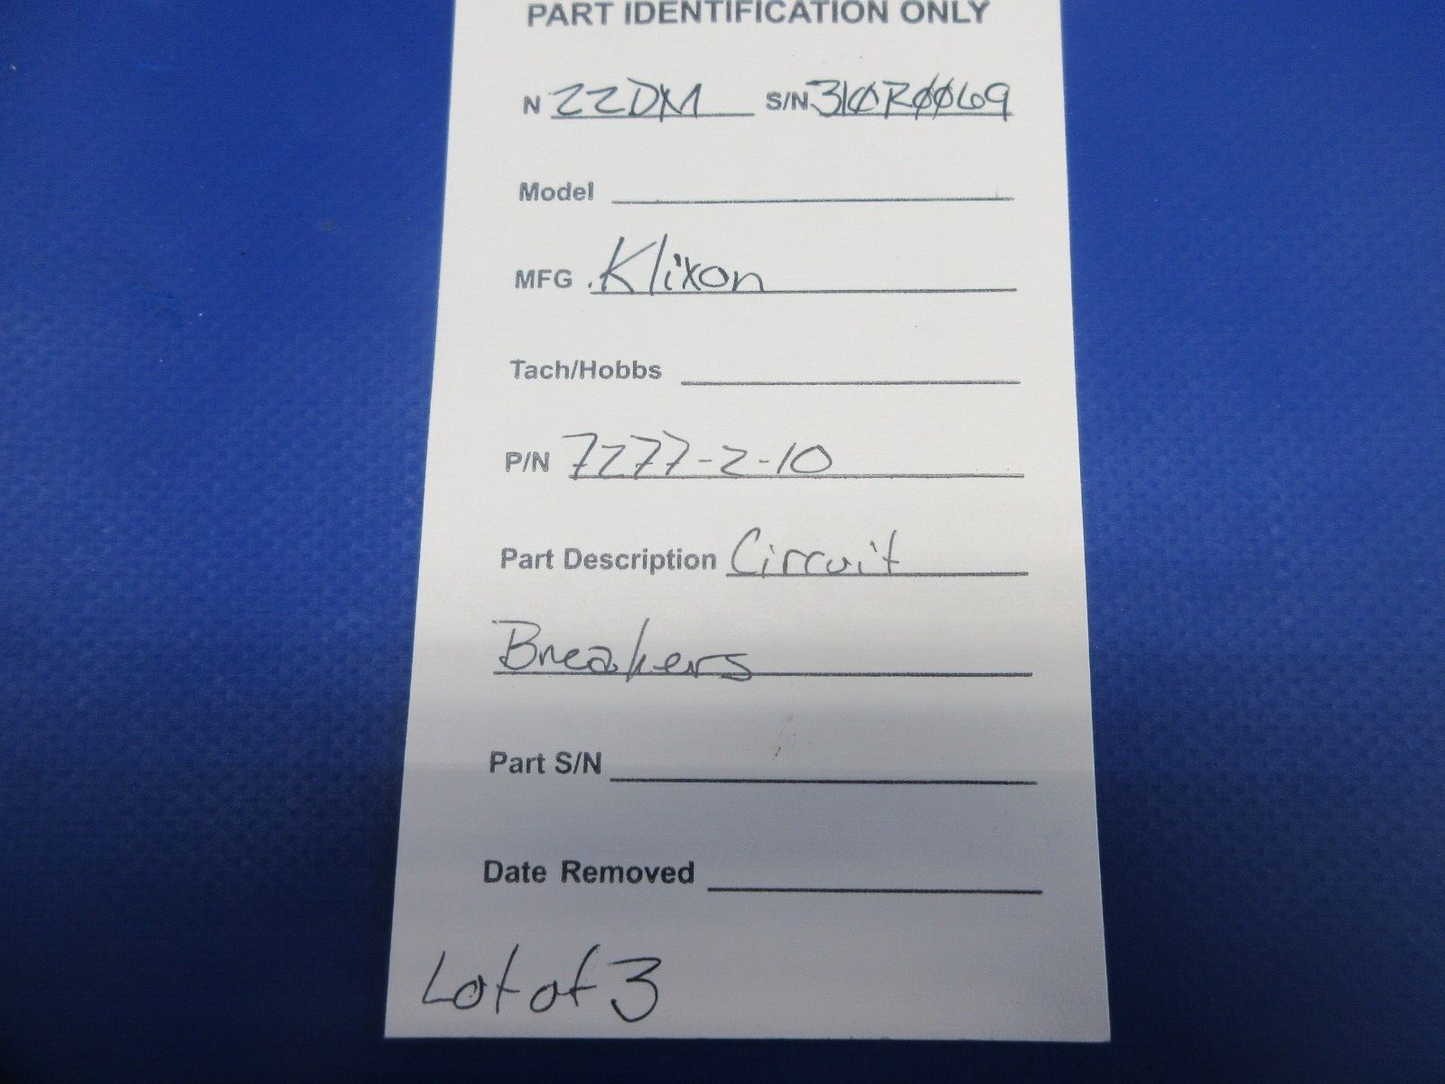 PART IDENTIFICATION ONLY
N 22DM S/N 310R0069
Model
MFG . Klixon
Tach/Hobbs
P/N 7277-2-10
Part Description Circuit
Breakers
Part S/N
Date Removed
Lot of 3